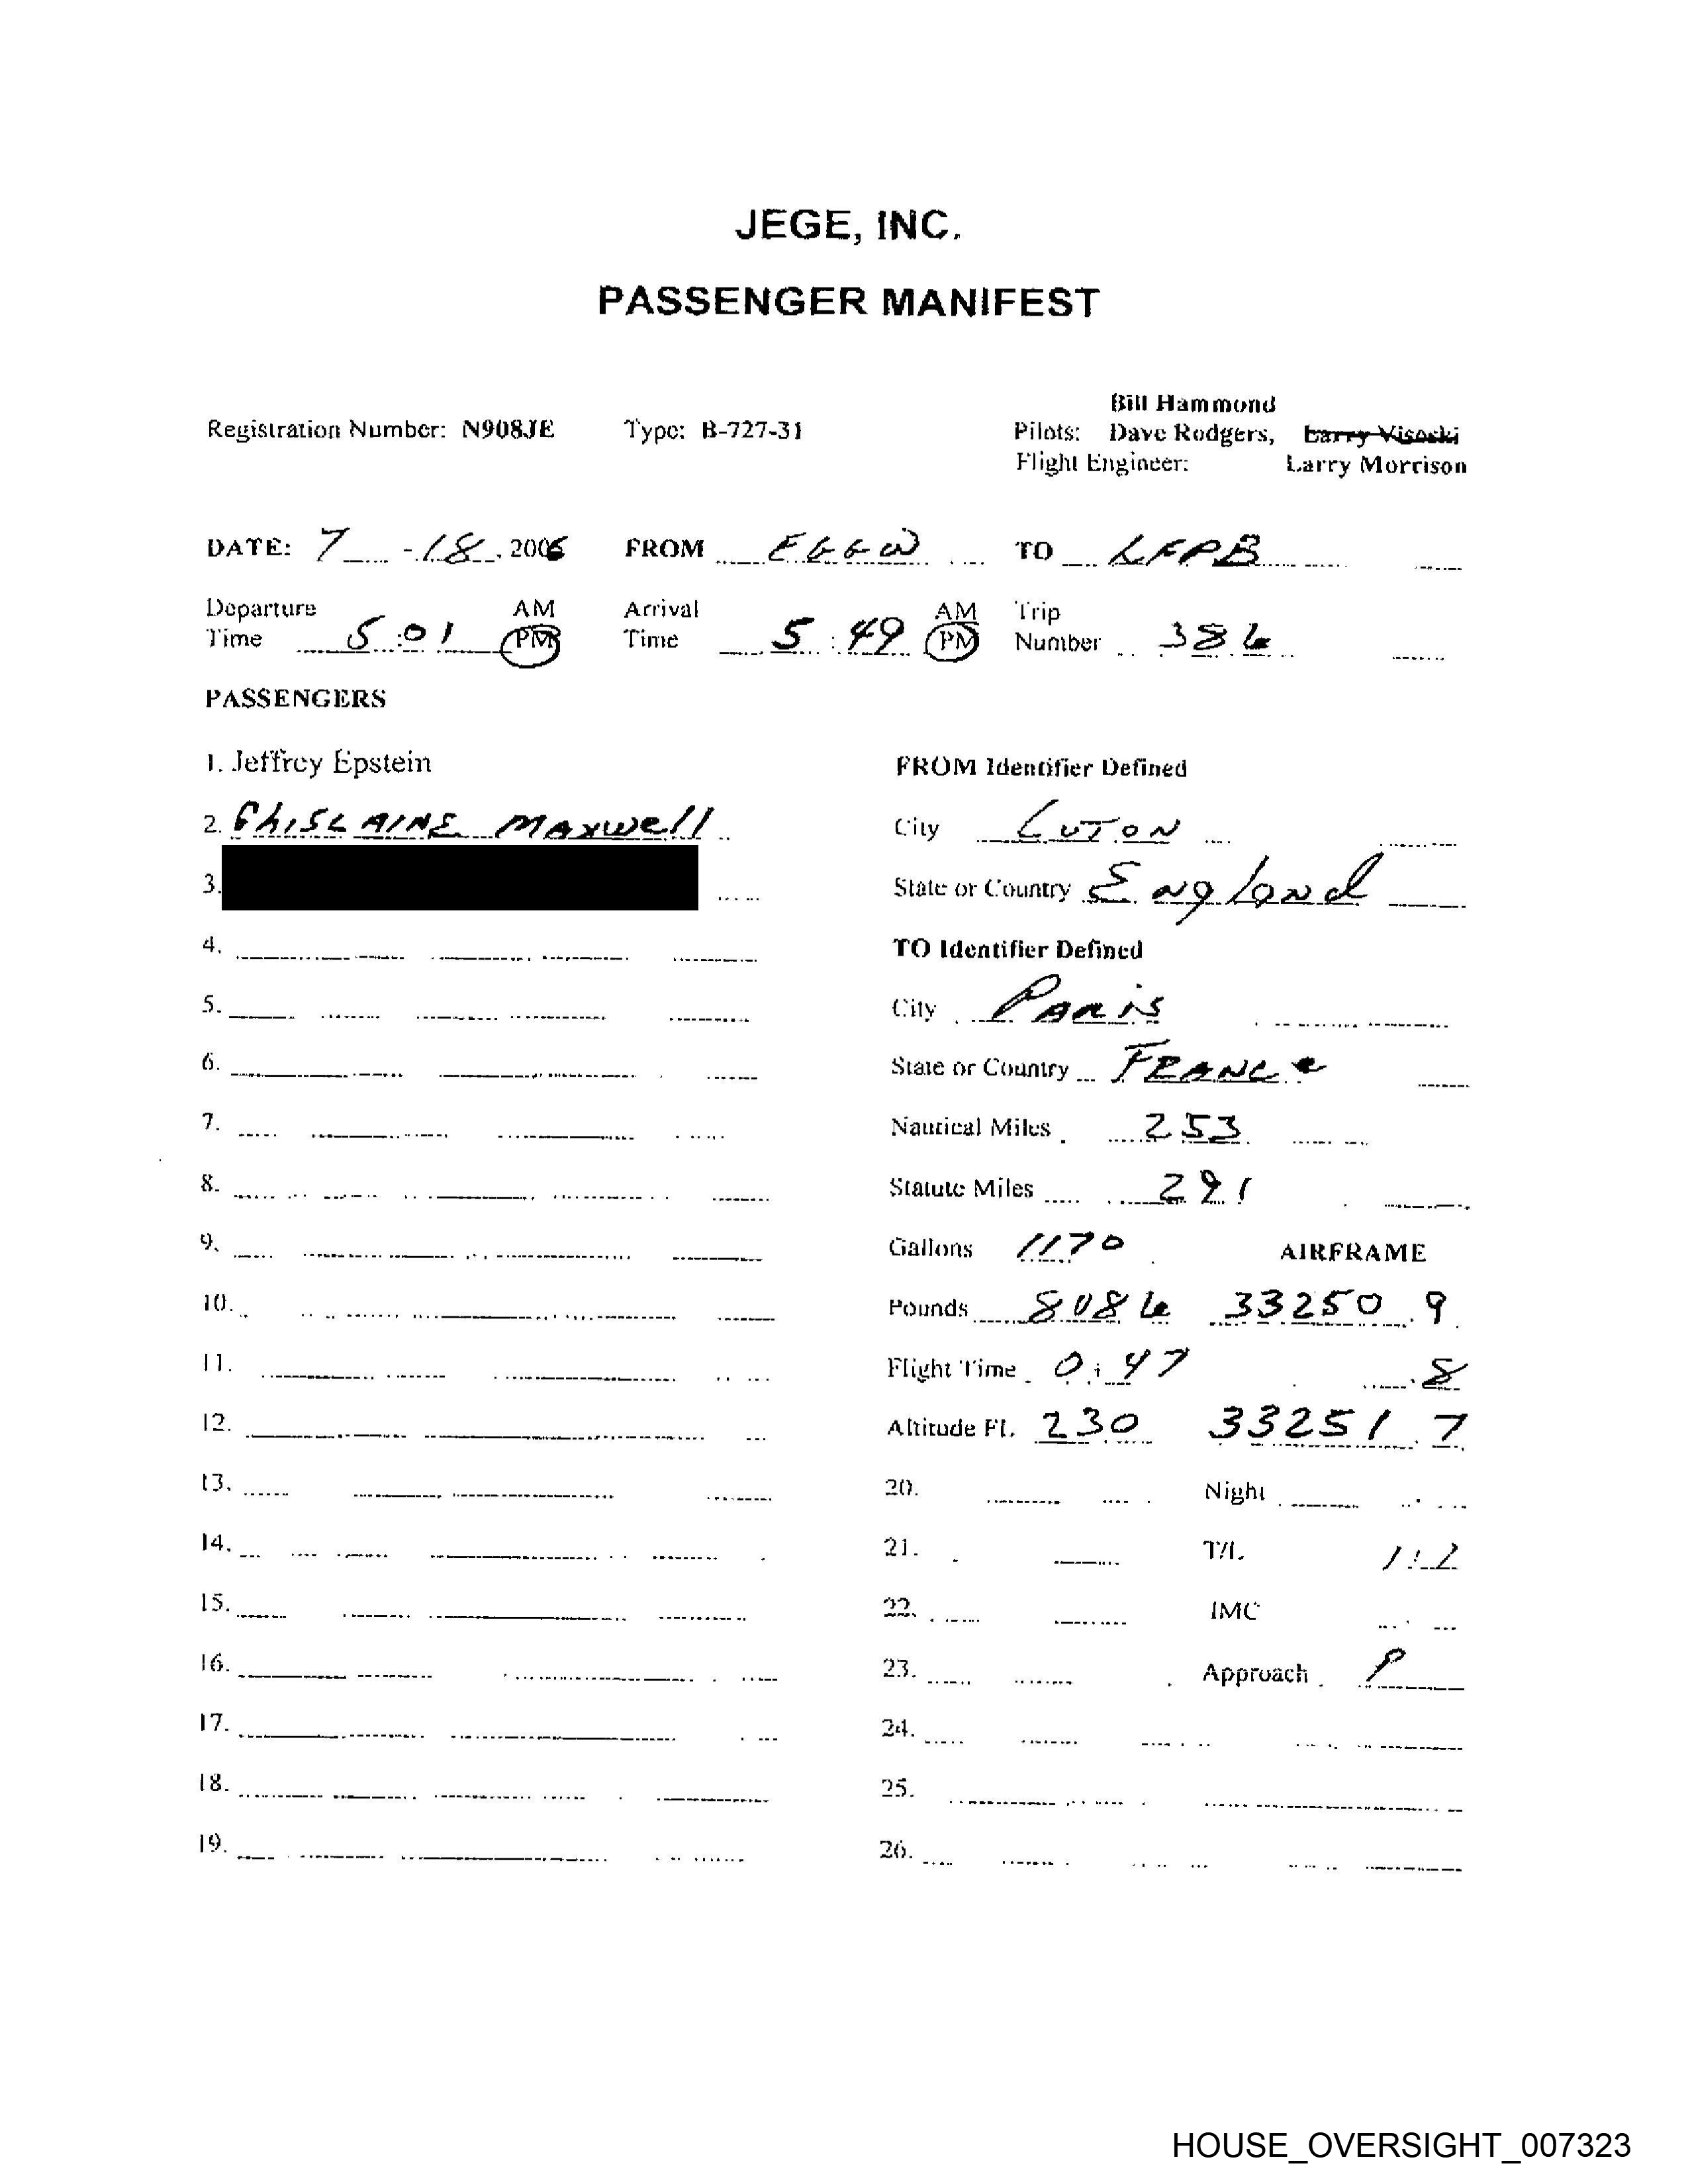 JEGE, INC.
PASSENGER MANIFEST
Bill Hammond
Registration Number: N908JE Type: B-727-31 Pilots: Dave Rodgers, Larry Visoski
Flight Engineer: Larry Morrison
DATE: 7 - 18, 2006 FROM EGGW TO LFPB
Departure Time 5:01 AM PM Arrival Time 5:49 AM PM Trip Number 386
PASSENGERS
1. Jeffrey Epstein FROM Identifier Defined
2. GhISLAINE MAxwell City LUTON
3. State or Country England
4. TO Identifier Defined
5. City PARis
6. State or Country FRANCe
7. Nautical Miles 253
8. Statute Miles 291
9. Gallons 1170 AIRFRAME
10. Pounds 8086 33250.9
11. Flight Time 0+47 .8
12. Altitude FL 230 33251.7
13. 20. Night
14. 21. T/L
15. 22. IMC
16. 23. Approach P
17. 24.
18. 25.
19. 26.
HOUSE_OVERSIGHT_007323